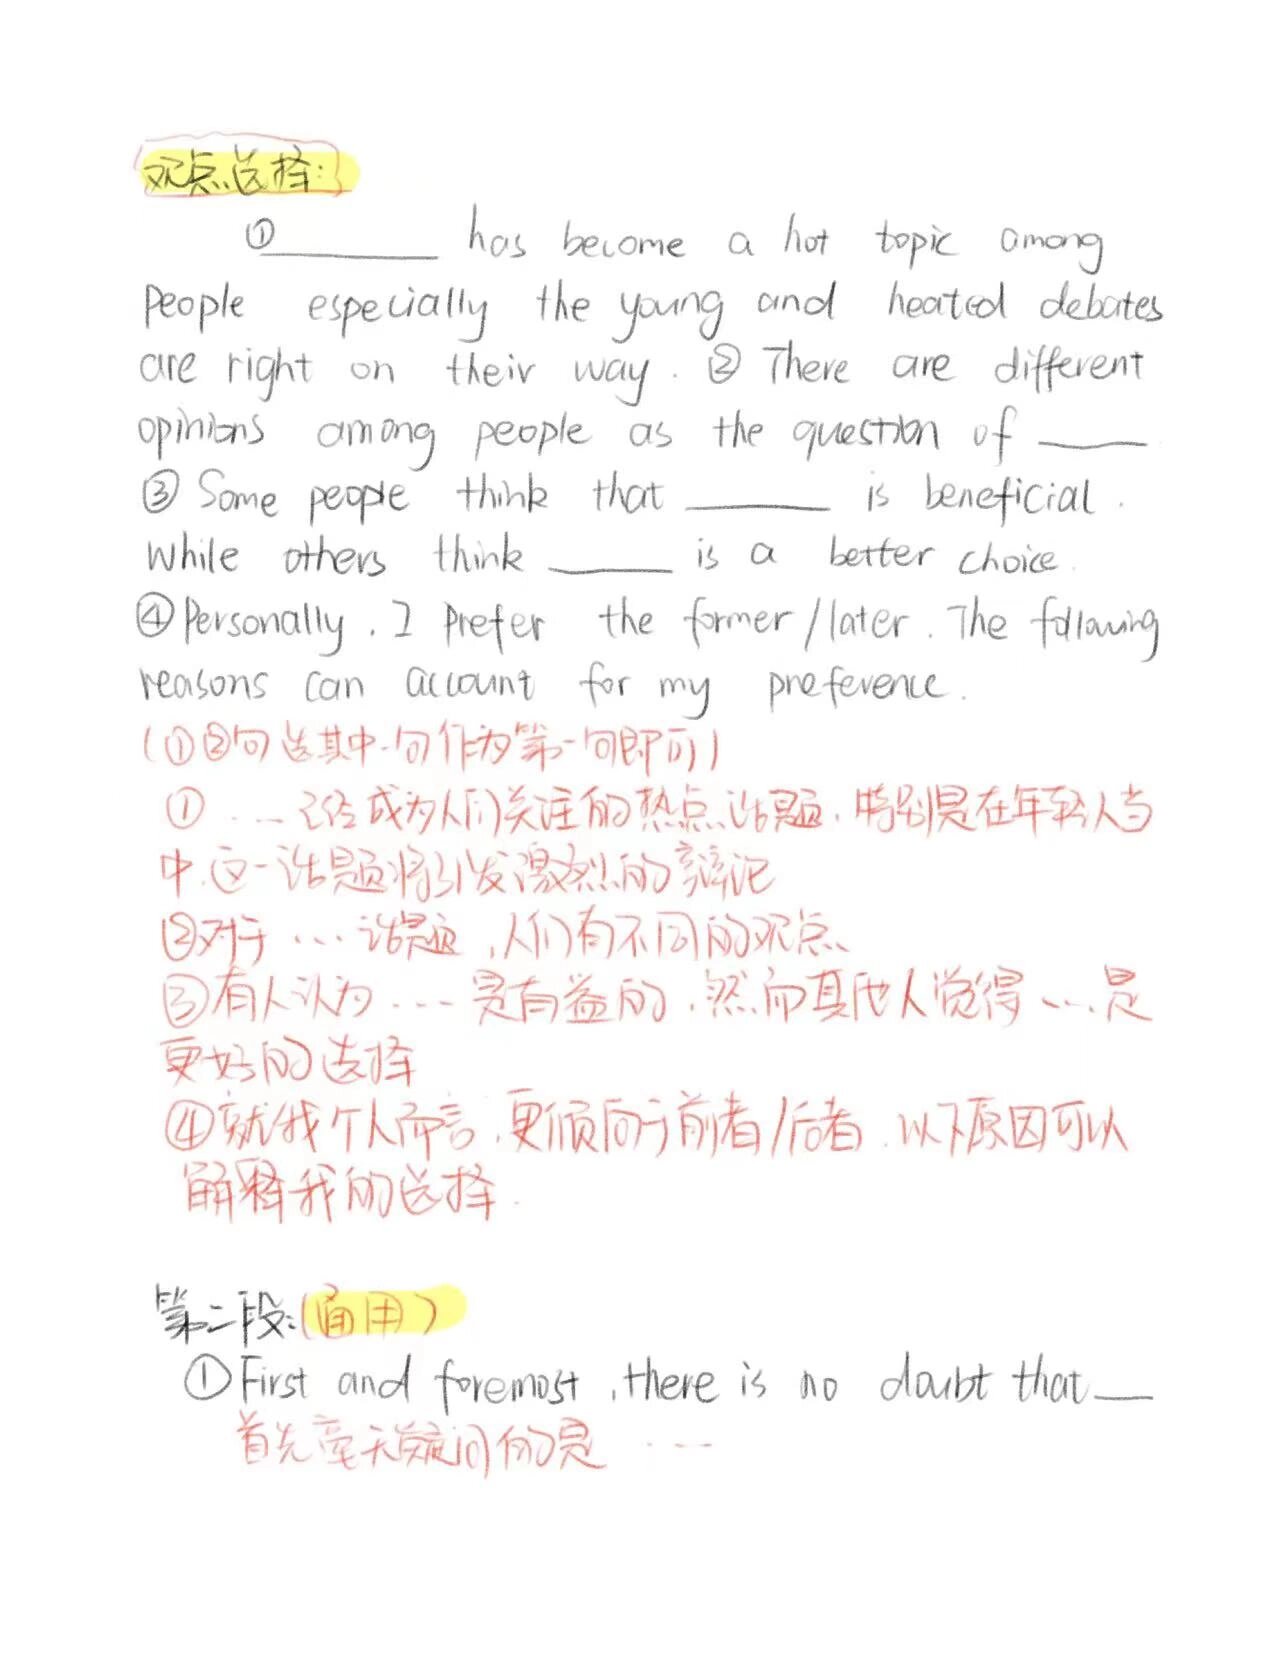 观点选择:
①______ has become a hot topic among
people especially the young and heated debates
are right on their way. ② There are different
opinions among people as the question of ____
③ Some people think that ______ is beneficial.
While others think _____ is a better choice.
④ Personally, I prefer the former/later. The following
reasons can account for my preference.
(①②句选其中一句作为第一句即可)
① ...已经成为人们关注的热点话题,特别是在年轻人当
中,这一话题将引发激烈的辩论
②对于...话题,人们有不同的观点、
③有人认为...是有益的,然而其他人觉得...是
更好的选择
④就我个人而言,更倾向于前者/后者,以下原因可以
解释我的选择.
第二段:(通用)
①First and foremost,there is no doubt that___
首先毫无疑问的是 ...